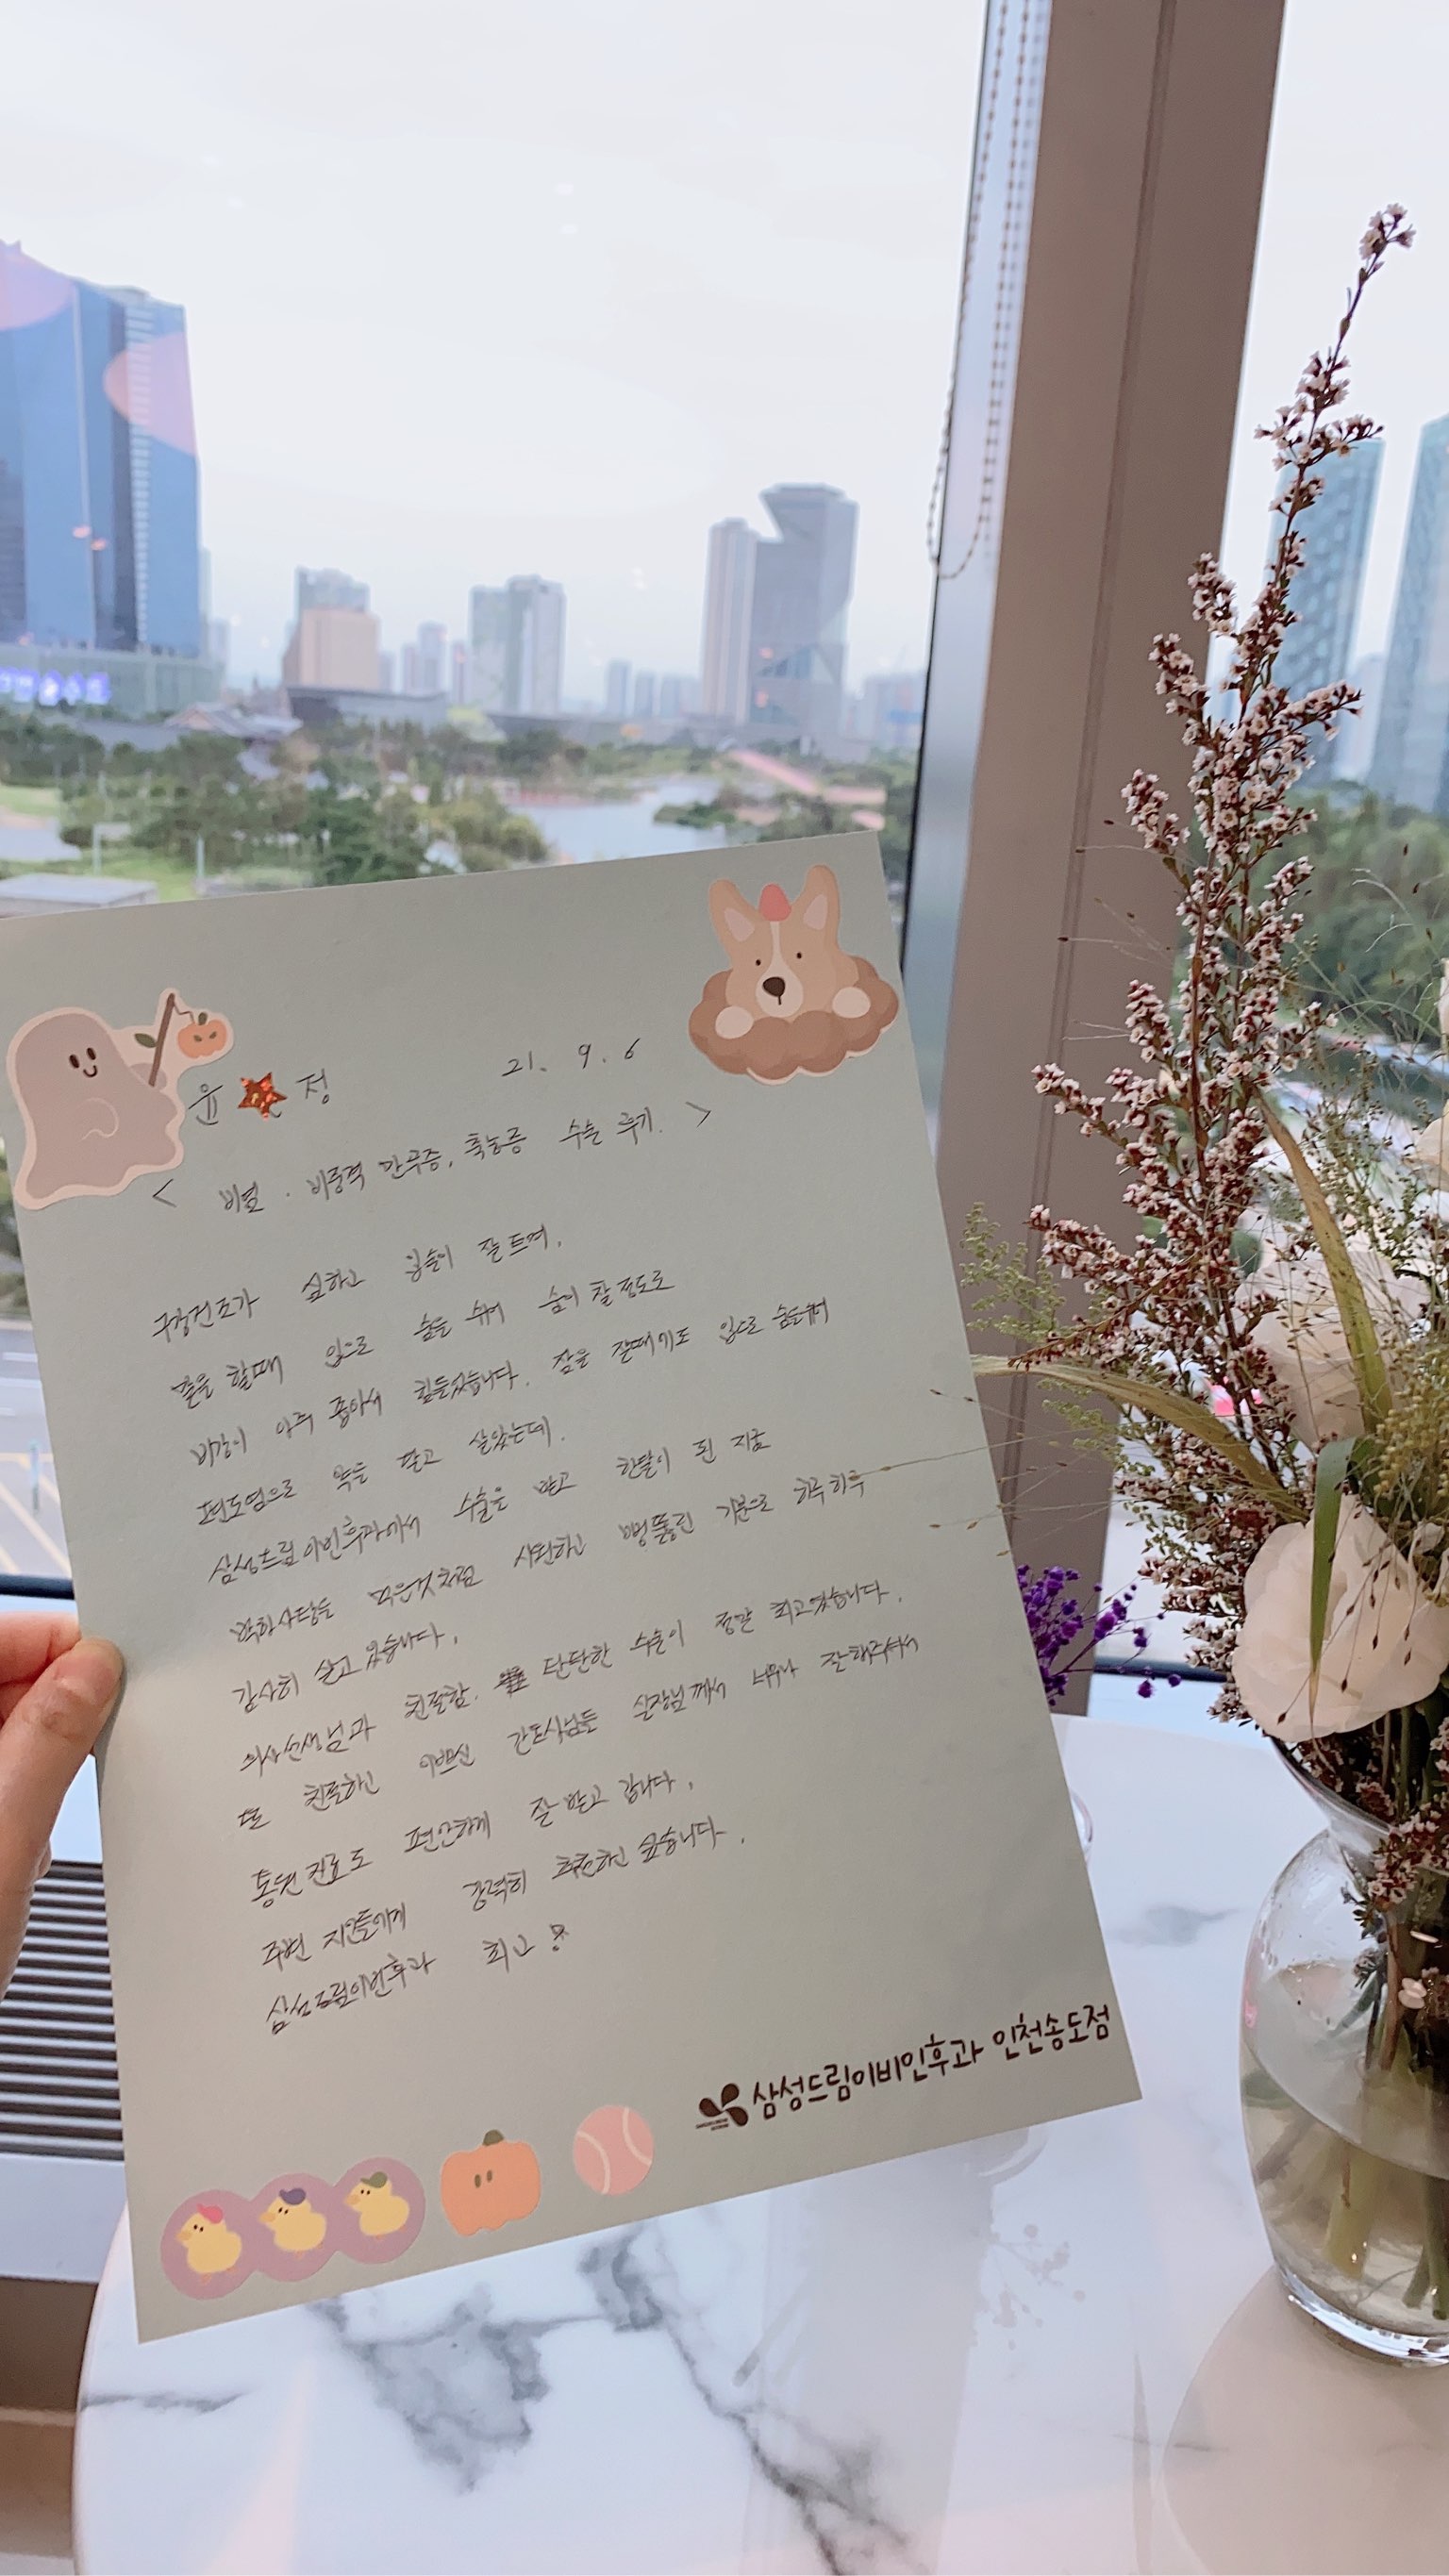 윤 정
21. 9. 6
< 비염 . 비중격 만곡증, 축농증 수술 후기. >
구강건조가 심하고 입술이 잘 트며,
말을 할때 입으로 숨을 쉬어 숨이 찰 정도로
비강이 아주 좁아서 힘들었습니다. 잠을 잘때기도 입으로 숨을쉬어
편도염으로 약을 달고 살았는데.
삼성드림이비인후과에서 수술을 받고 한달이 된 지금
박하사탕을 먹은것처럼 시원하고 뻥뚫린 기분으로 하루하루
감사히 살고 있습니다.
의사선생님과 친절함. 단단한 수술이 정말 최고였습니다.
또 친절하고 이쁘신 간호사님들 실장님께서 너무나 잘해주셔서
통원진료도 편안하게 잘 받고 갑니다.
주변 지인들에게 강력히 추천하고 싶습니다.
삼성드림이비인후과 최고
삼성드림이비인후과 인천송도점